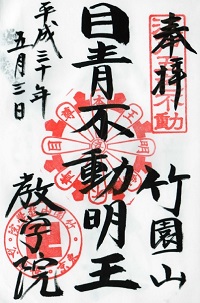 奉拝
竹園山
目青不動明王
教学院
平成三十年
五月三日